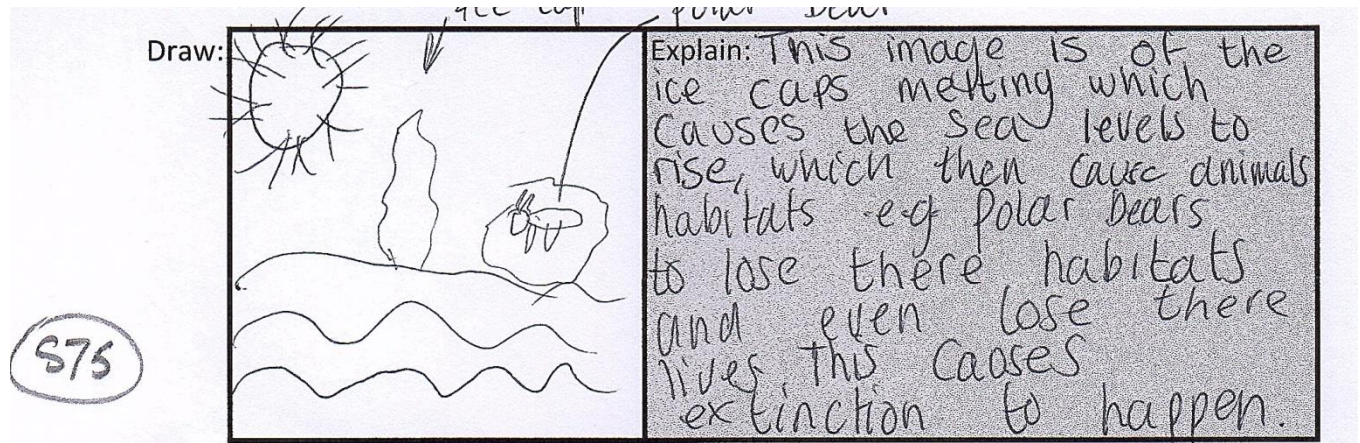 ice cap polar bear
Draw:
Explain: This image is of the
ice caps melting which
causes the sea levels to
rise, which then cause animals
habitats e.g polar bears
to lose there habitats
and even lose there
lives. This causes
extinction to happen.
S75